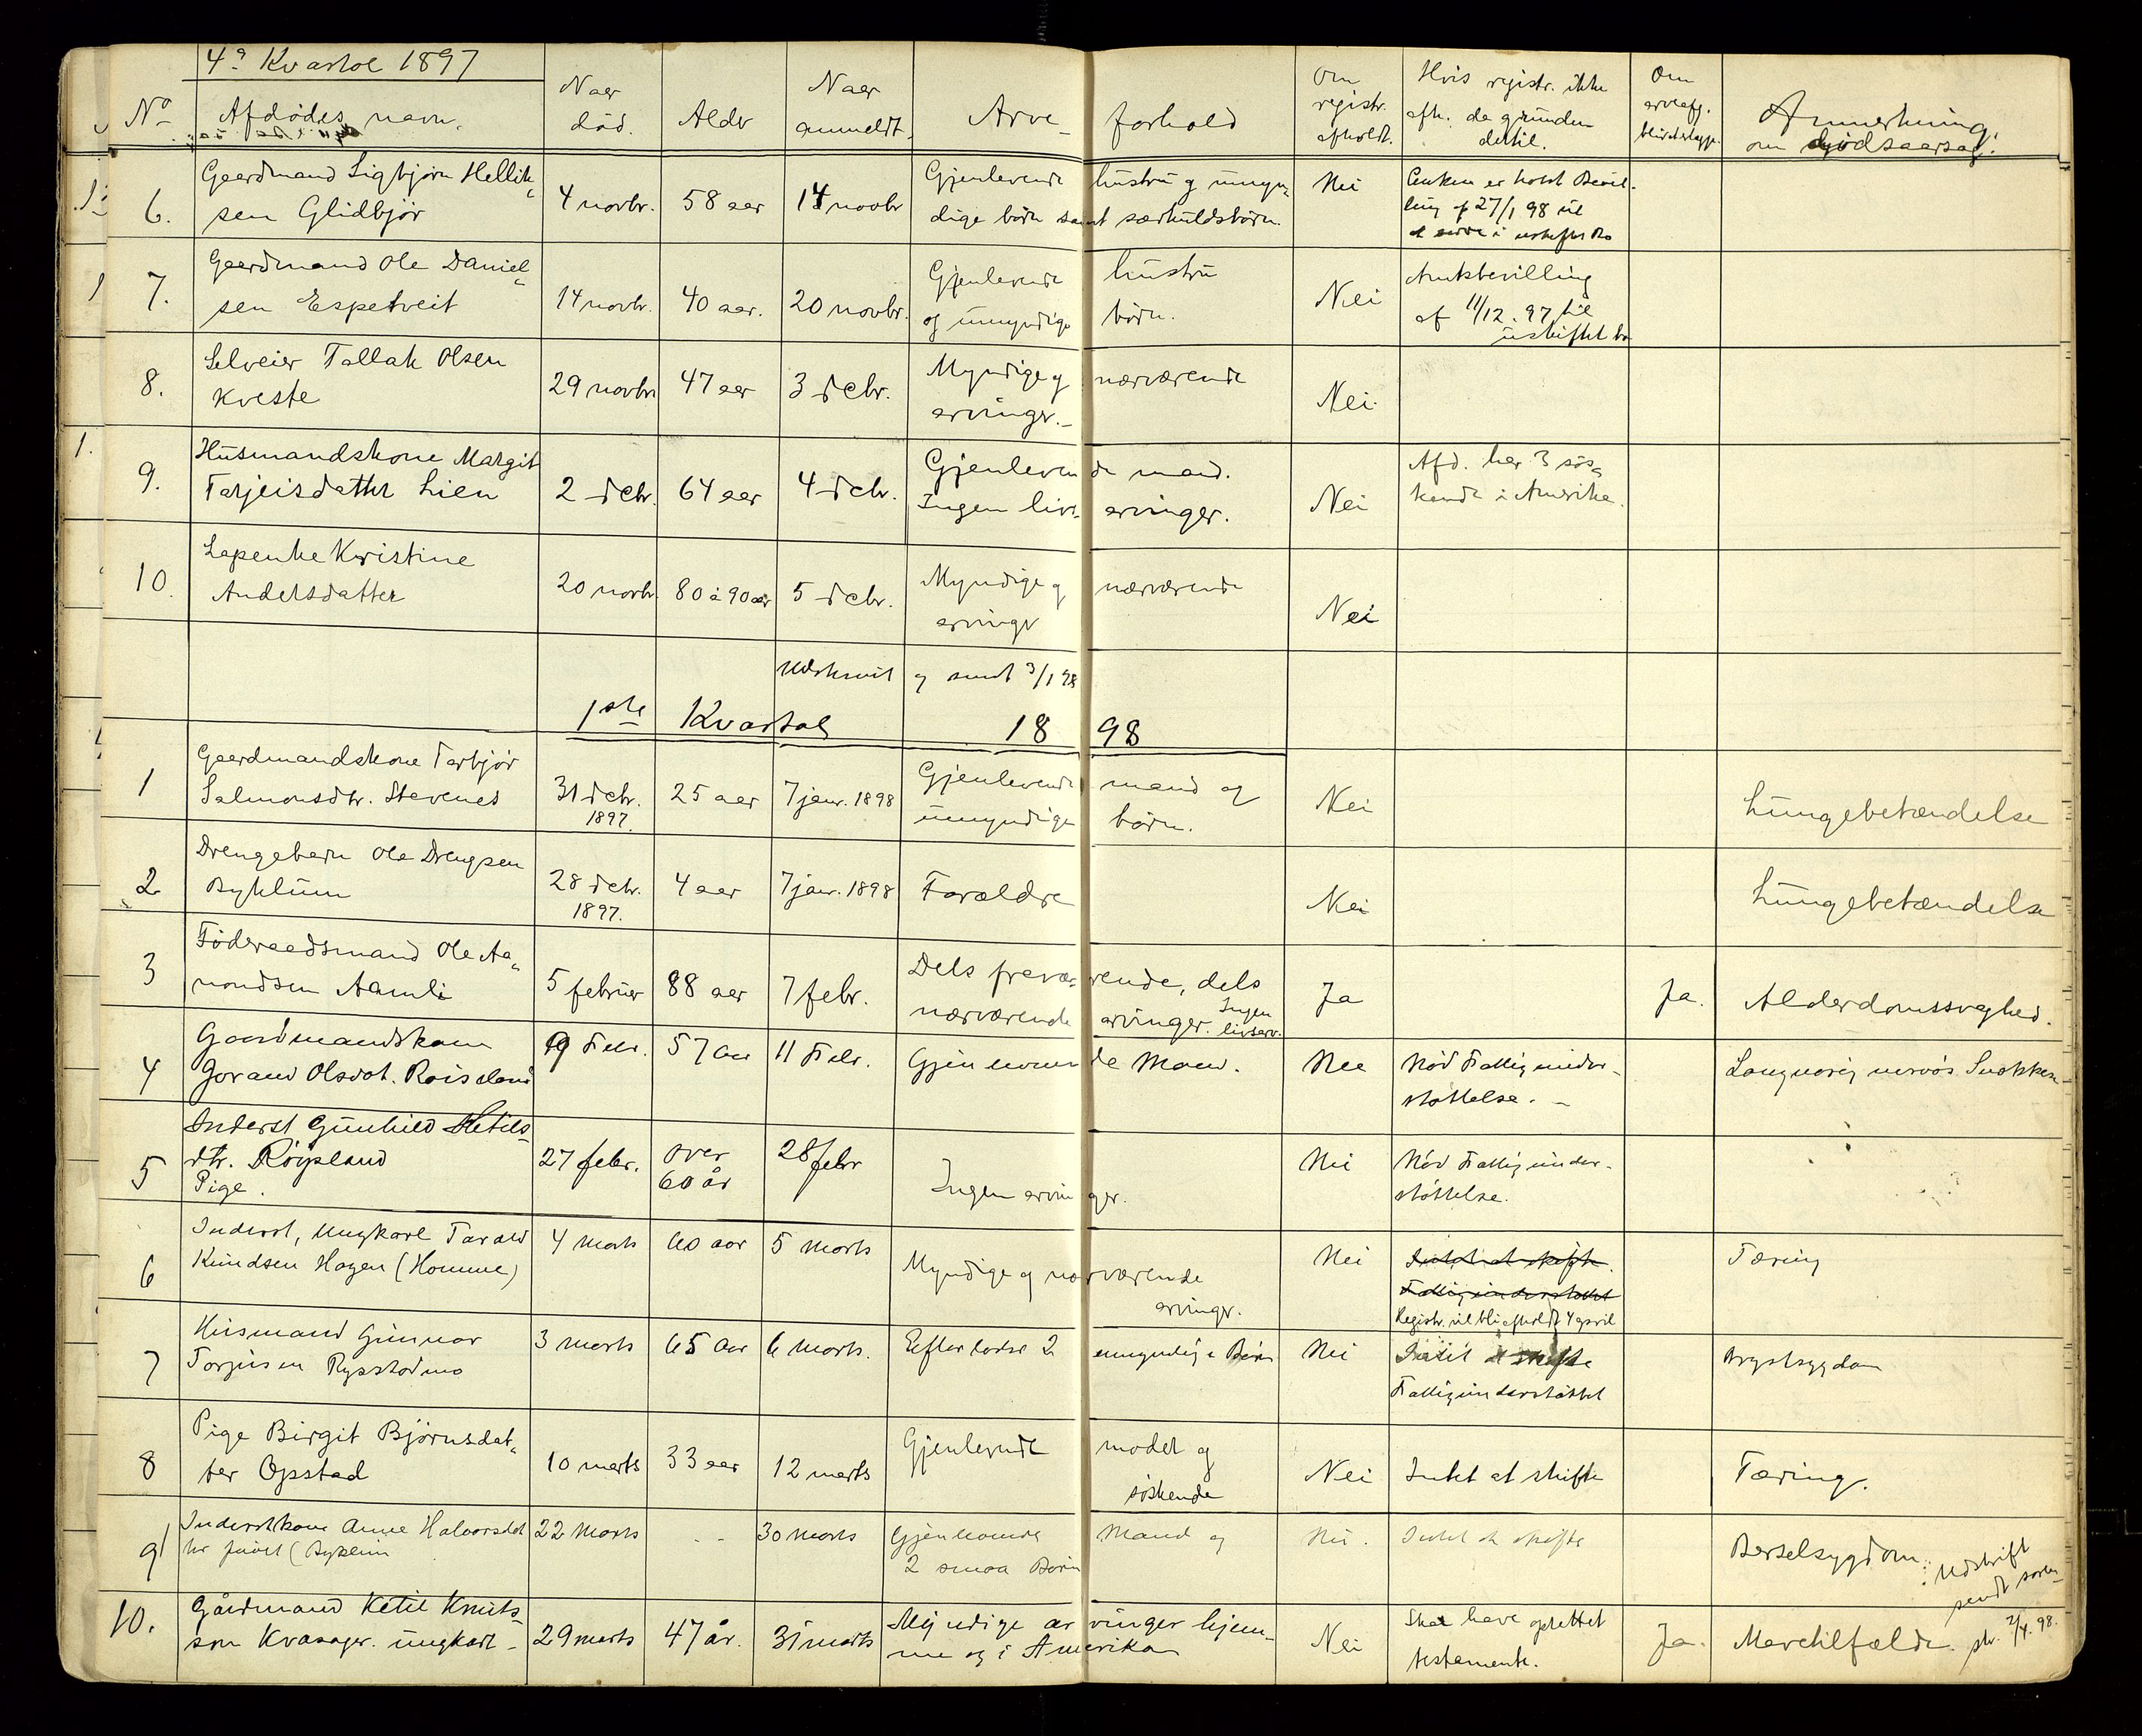 4de Kvartal 1897
No Afdødes navn. Naar død. Alder Naar anmeldt. Arve- forhold Om registr. afholdt. Hvis registr. ikke afh. da grunden dertil. Om arveafg. Anmerkning. om dødsaarsag.
6. Gaardmand Sigbjørn Hellik-
sen Glidbjør 4 novbr. 58 aar 14 novbr Gjenlevende hustru og umyn-
dige børn samt særkuldsbørn. Nei Enken er Bevil-
ling af 27/1 98 til
at sidde i uskiftet Bo
7. Gaardmand Ole Daniel-
sen Espetveit 14 novbr. 40 aar. 20 novbr. Gjenlevende hustru
og umyndige børn. Nei Amtsbevilling
af 11/12. 97 til
uskiftet bo
8. Selveier Tallak Olsen
Kveste 29 novbr 47 aar 3 decbr. Myndige og nærværende
arvinger.- Nei.
9. Husmandskone Margit
Tarjeisdatter Lien 2 decbr. 64 aar 4 decbr. Gjenlevende mand.
Ingen livs- arvinger. Nei Afd. har 3 søs-
kende i Amerika.
10. Kristine
Andersdatter 20 novbr 80 à 90 aar 5 decbr. Myndige og nærværende
arvinger Nei
Udskrevet og sendt 3/1 98
1ste Kvartal 1898
1 Gaardmandskone Torbjør
Salmonsdtr. Stavenes 31 decbr.
1897. 25 aar 7 janr. 1898 Gjenlevende mand og
umyndige børn. Nei Lungebetændelse
2 Drengebarn Ole Drengsen
Byklum 28 decbr.
1897. 4 aar 7 janr. 1898 Forældre Nei Lungebetændelse
3 Føderaadsmand Ole Aa-
nondsen Aamli 5 februar 88 aar 7 febr. Dels fravæ-rende, dels
nærværende arvinger. Ingen
livsarv. Ja Ja. Alderdomssvaghed.
4 Gaardmandskone
Goraand Olsdot. Roiseland 9 Febr. 57 Aar 11 Febr. Gjenlevende Mand. Nei Nød Fattigunder-
støttelse. - Langvarig nervøs
5 Inderst Gunhild Ketils-
dtr. Røysland
Pige. 27 febr. over
60 år 28 febr Ingen arvinger. Nei Nød Fattigunder-
støttelse.
6 Inderst, Ungkarl Tarald
Knudsen Hagen (Homme) 4 marts 60 aar 5 marts Myndige og nærværende
arvinger. Nei Intet at skifte.
Fattigunderstøttet
Registr. vil bli afholdt 4 april Tæring
7 Husmand Gunnar
Torjusen Rysstadmo 3 marts 65 Aar 6 marts. Efterlader 2 umyndige Børn Nei Intet at skifte
Fattigunderstøttet Brystsygdom
8 Pige Birgit Bjørnsdat-
ter Opstad 10 marts 33 aar 12 marts Gjenlevende moder og
søskende Nei Intet at skifte Tæring.
9 Inderstkone Anne Halvorsdat
ter (Byklum 22 Marts - - 30 Marts Gjenlevende Mand og
2 smaa Børn Nei. Intet at skifte Barselsygdom.
Udskrift
sendt soren-
skr. 2/4. 98.
10. Gårdmand Ketil Knuts-
son Kvasager. ungkarl - 29 marts 47 år. 31 marts Myndige arvinger hjem-
me og i Amerika Nei Skal have oprettet
testamente. Ja. Mavetilfælde.